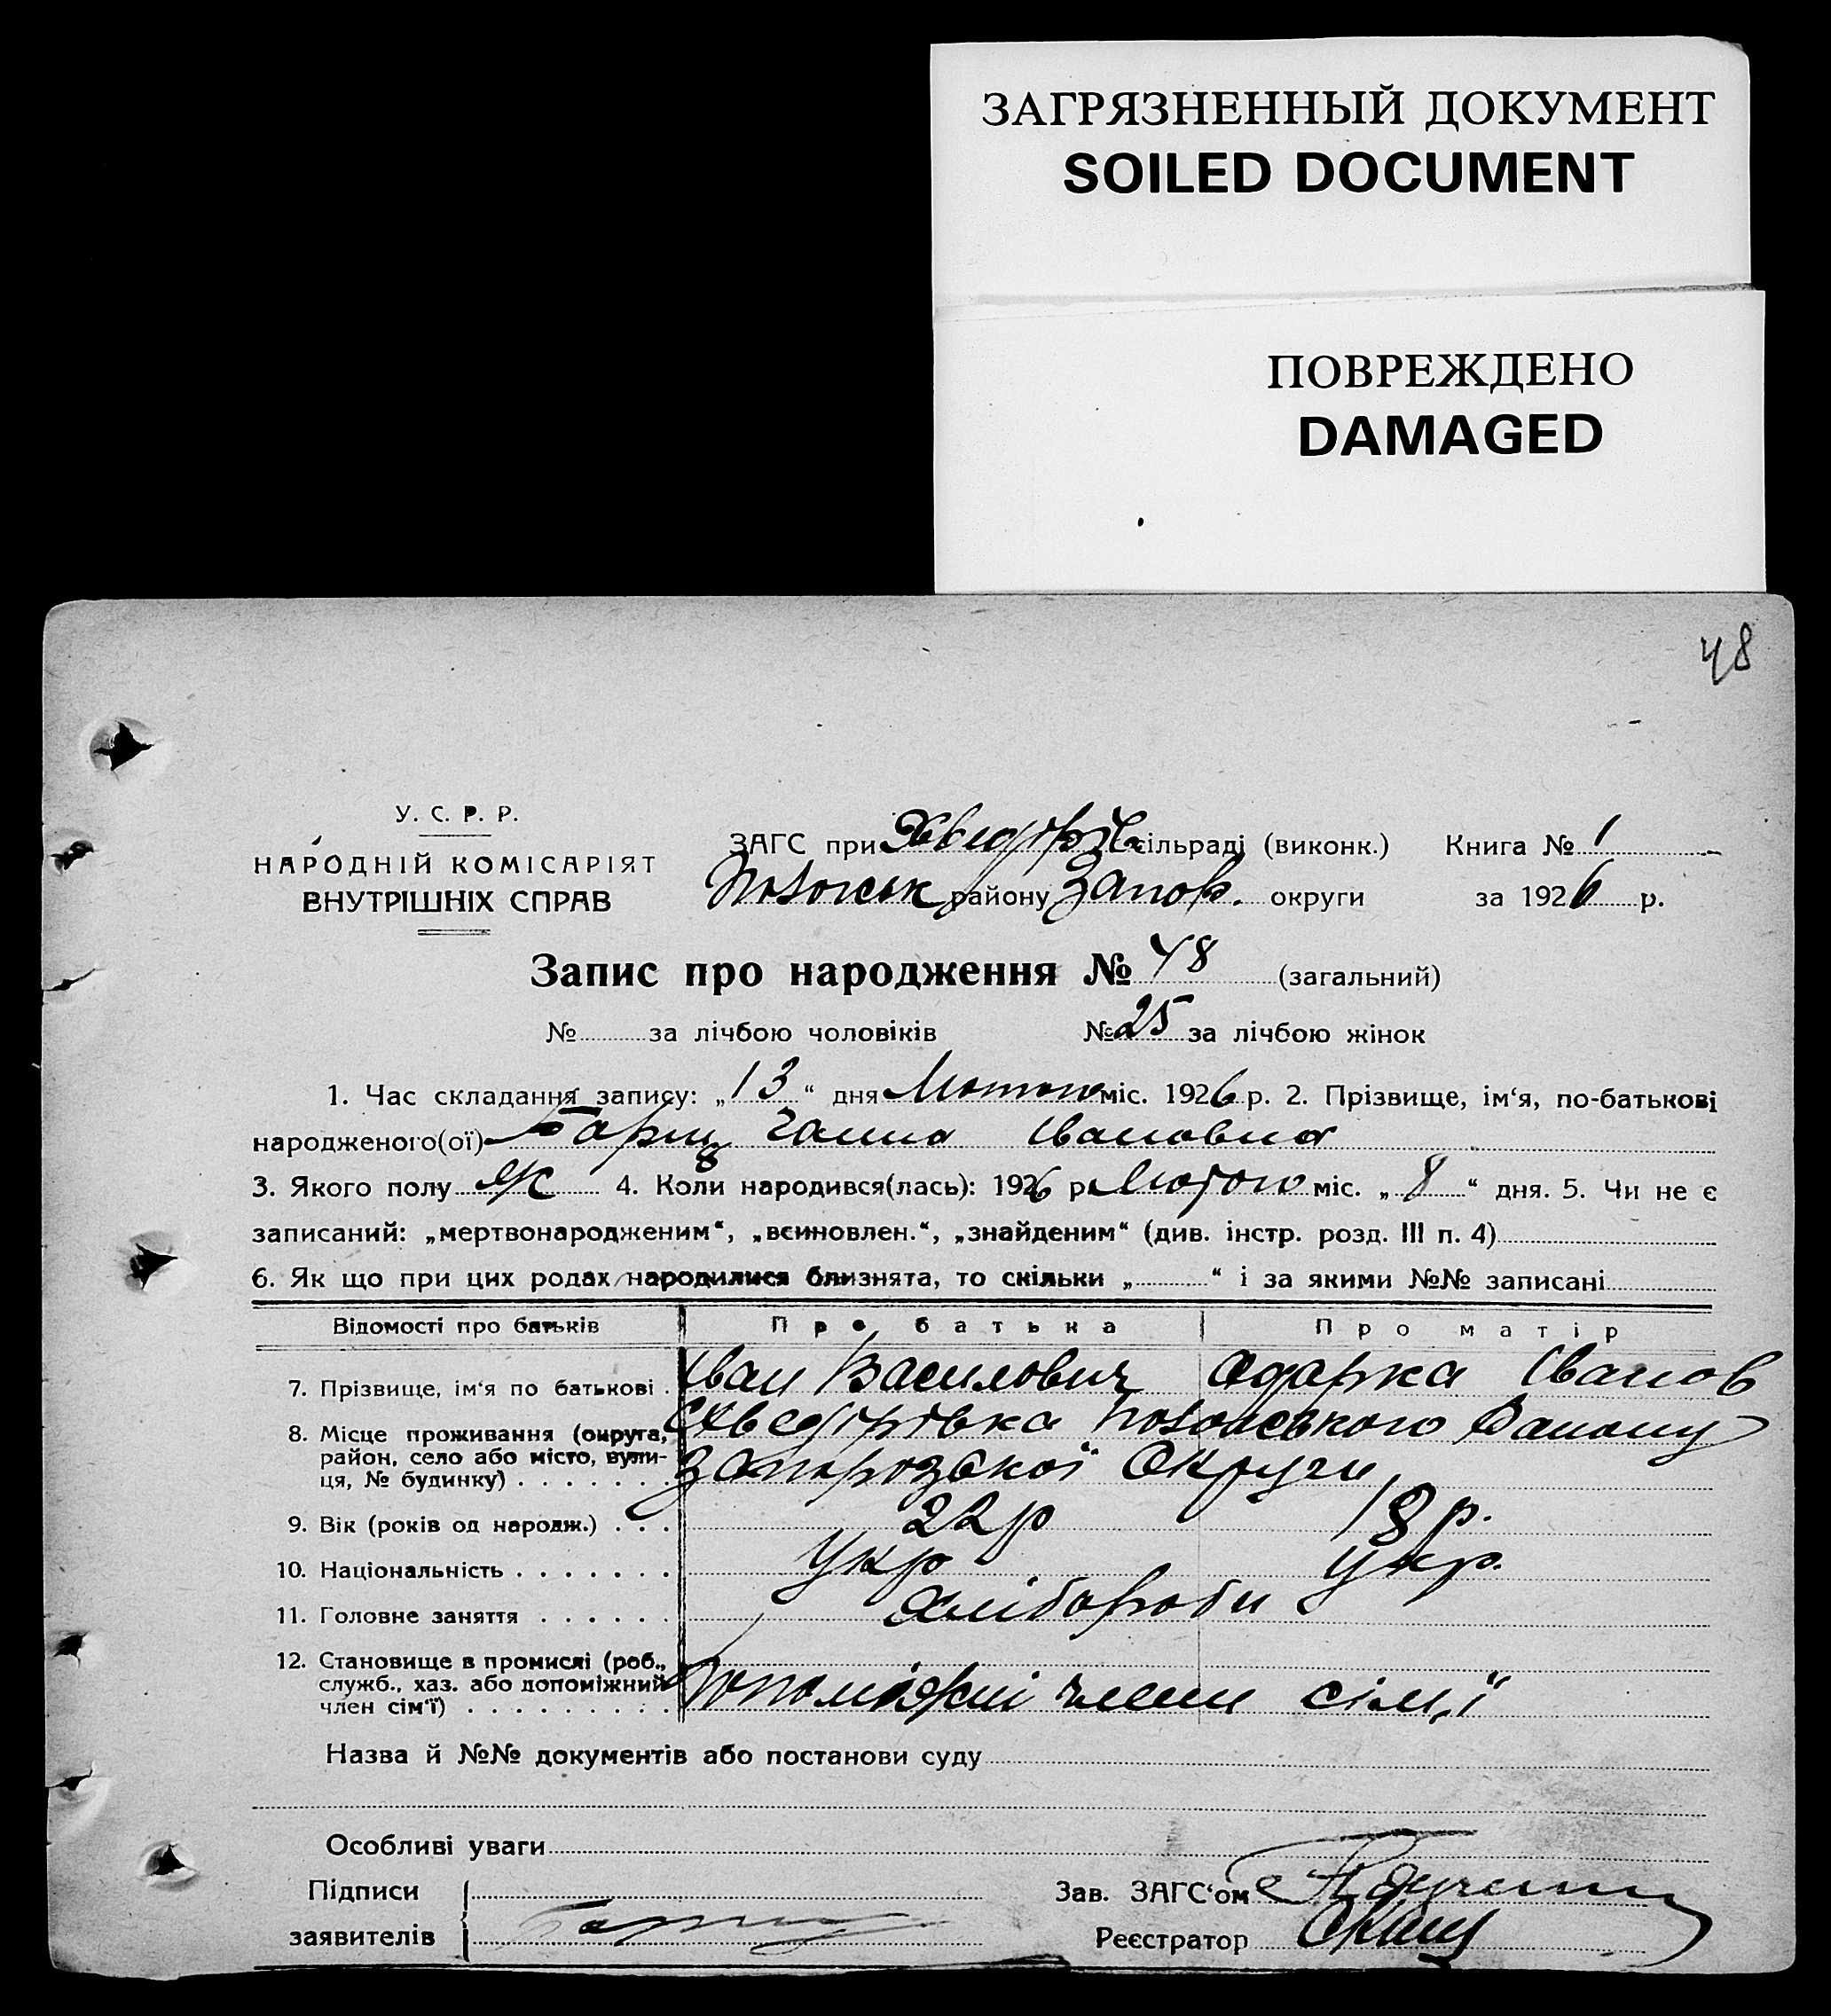 ЗАГРЯЗНЕННЫЙ ДОКУМЕНТ
SOILED DOCUMENT
ПОВРЕЖДЕНО
DAMAGED
48
У. С. Р. Р.
НАРОДНІЙ КОМІСАРІЯТ
ВНУТРІШНІХ СПРАВ
ЗАГС при Хведорів сільраді (виконк.) Книга № 1
району Запор. округи за 1926 р.
Запис про народження № 48 (загальний)
№ за лічбою чоловіків № 25 за лічбою жінок
1. Час складання запису: „13“ дня Лютого міс. 1926 р. 2. Прізвище, ім‘я, по-батькові
народженого(ої) Ганна Івановна
3. Якого полу Ж 4. Коли народився(лась): 1926 р. Лютого міс. „8“ дня. 5. Чи не є
записаний: „мертвонародженим“, „всиновлен.“, „знайденим“ (див. інстр. розд. III п. 4)
6. Як що при цих родах народилися близнята, то скільки „ “ і за якими №№ записані
Відомості про батьків Про батька Про матір
7. Прізвище, ім‘я по батькові Іван Василович Одарка Іванов
8. Місце проживання (округа, Хведорівка
район, село або місто, вули- Запорозької Округи
ця, № будинку)
9. Вік (років од народж.) 22 р 18 р.
10. Національність Укр Укр.
11. Головне заняття Хлібороби
12. Становище в промислі (роб.,
служб., хаз. або допоміжний Допоміжні члени сім,ї
член сім‘ї)
Назва й №№ документів або постанови суду
Особливі уваги
Підписи Зав. ЗАГС‘ом
заявителів Реєстратор